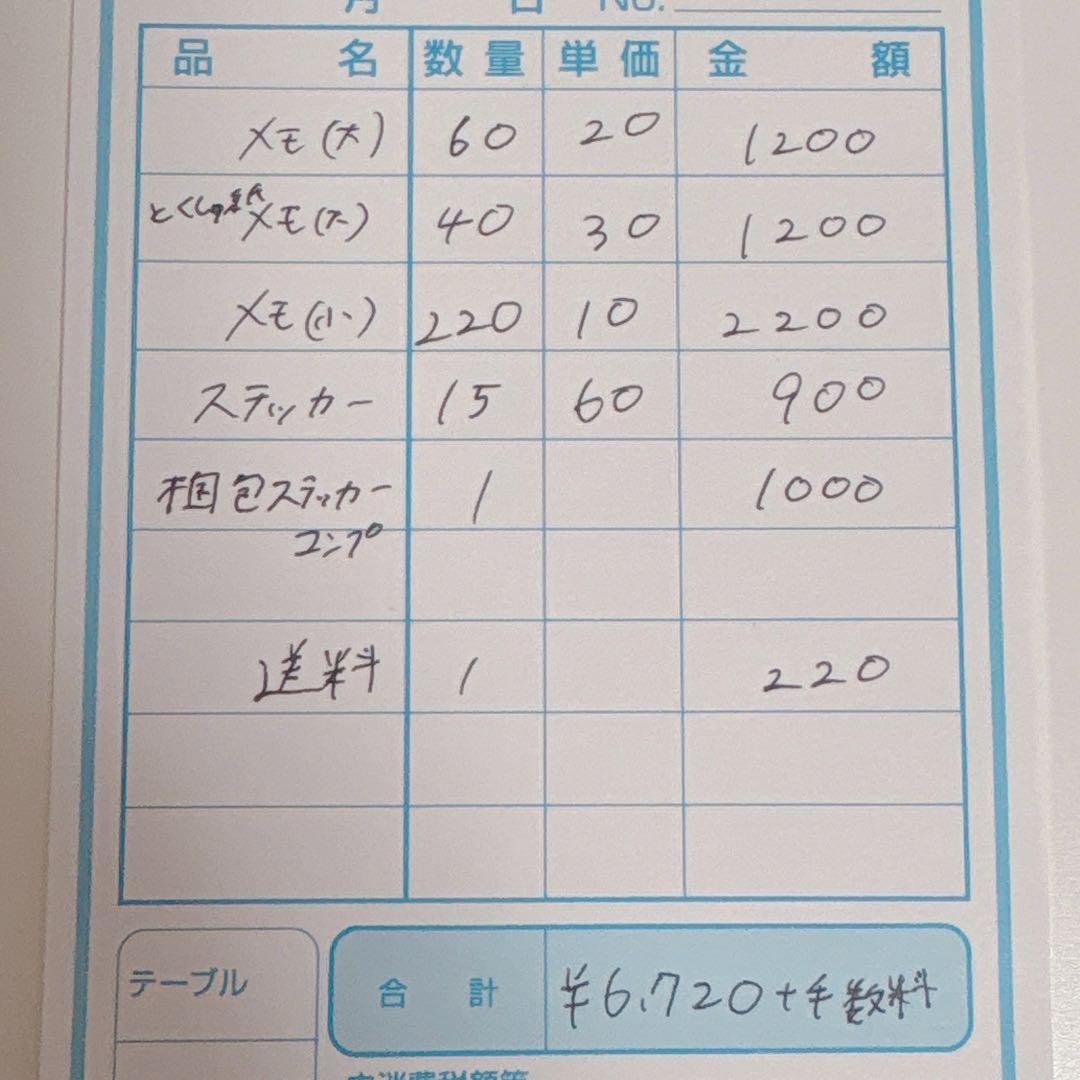 月 日 No.
品名 数量 単価 金額
メモ(大) 60 20 1200
とくしゅ紙メモ(大) 40 30 1200
メモ(小) 220 10 2200
ステッカー 15 60 900
梱包ステッカー 1 1000
コンプ
送料 1 220
テーブル
合計 ¥6,720+手数料